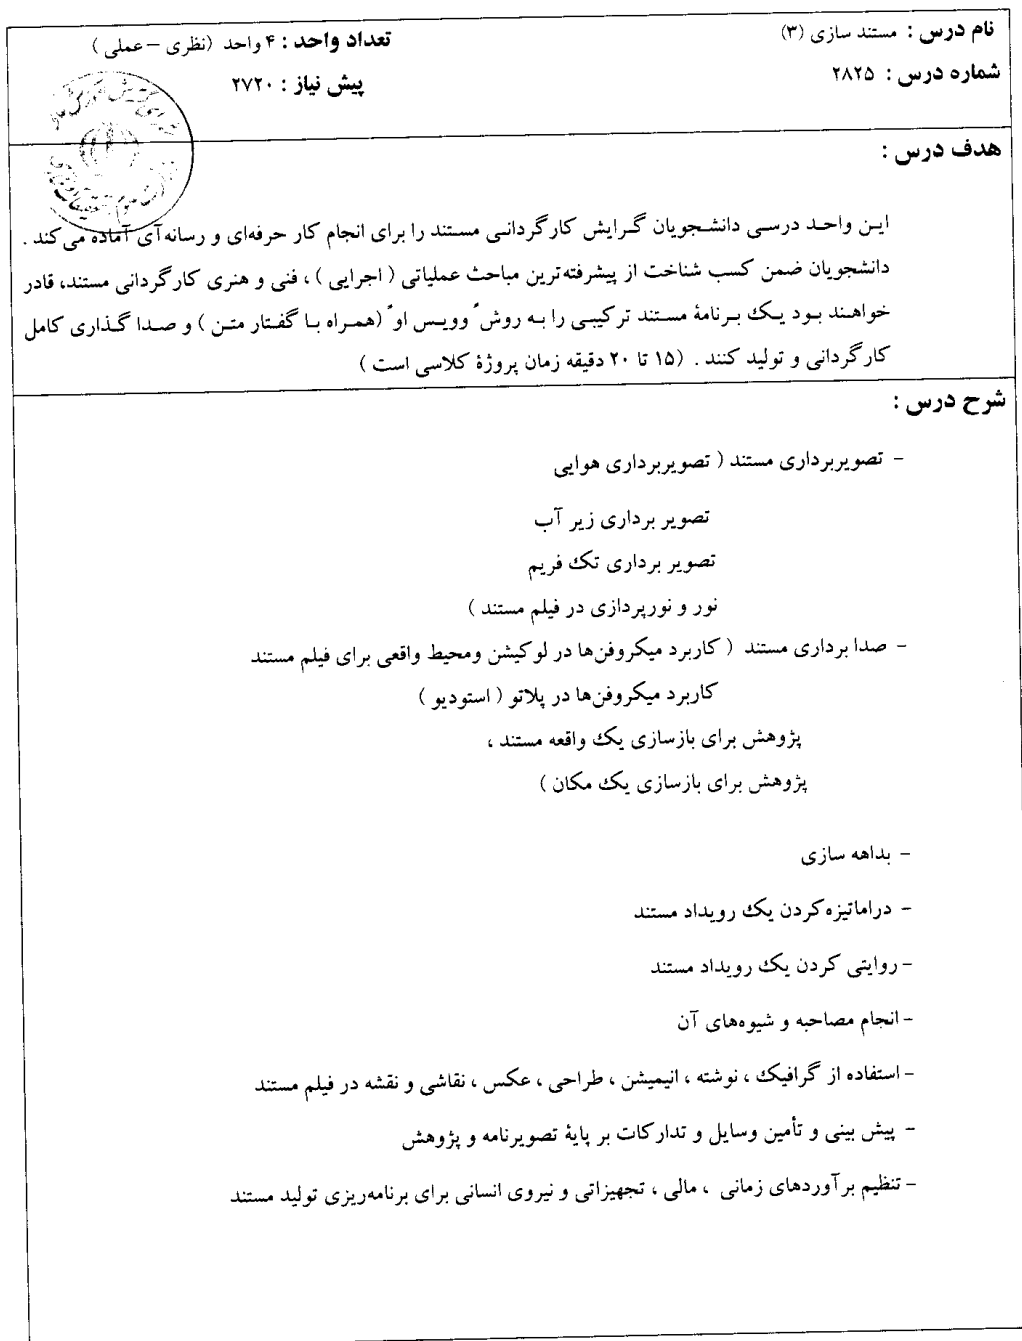 نام درس : مستند سازی (۳)
تعداد واحد : ۴ واحد (نظری – عملی )
شماره درس : ۲۸۲۵
پیش نیاز : ۲۷۲۰
هدف درس :
این واحد درسی دانشجویان گرایش کارگردانی مستند را برای انجام کار حرفه‌ای و رسانه‌آی آماده می‌کند .
دانشجویان ضمن کسب شناخت از پیشرفته‌ترین مباحث عملیاتی ( اجرایی ) ، فنی و هنری کارگردانی مستند، قادر
خواهند بود یک برنامۀ مستند ترکیبی را به روش ً وویس او ً (همراه با گفتار متن ) و صدا گذاری کامل
کارگردانی و تولید کنند . (۱۵ تا ۲۰ دقیقه زمان پروژۀ کلاسی است )
شرح درس :
- تصویربرداری مستند ( تصویربرداری هوایی
تصویر برداری زیر آب
تصویر برداری تک فریم
نور و نورپردازی در فیلم مستند )
- صدا برداری مستند ( کاربرد میکروفن‌ها در لوکیشن ومحیط واقعی برای فیلم مستند
کاربرد میکروفن‌ها در پلاتو ( استودیو )
پژوهش برای بازسازی یک واقعه مستند ،
پژوهش برای بازسازی یک مکان )
- بداهه سازی
- دراماتیزه‌کردن یک رویداد مستند
- روایتی کردن یک رویداد مستند
- انجام مصاحبه و شیوه‌های آن
- استفاده از گرافیک ، نوشته ، انیمیشن ، طراحی ، عکس ، نقاشی و نقشه در فیلم مستند
- پیش بینی و تأمین وسایل و تدارکات بر پایۀ تصویرنامه و پژوهش
- تنظیم برآوردهای زمانی ، مالی ، تجهیزاتی و نیروی انسانی برای برنامه‌ریزی تولید مستند